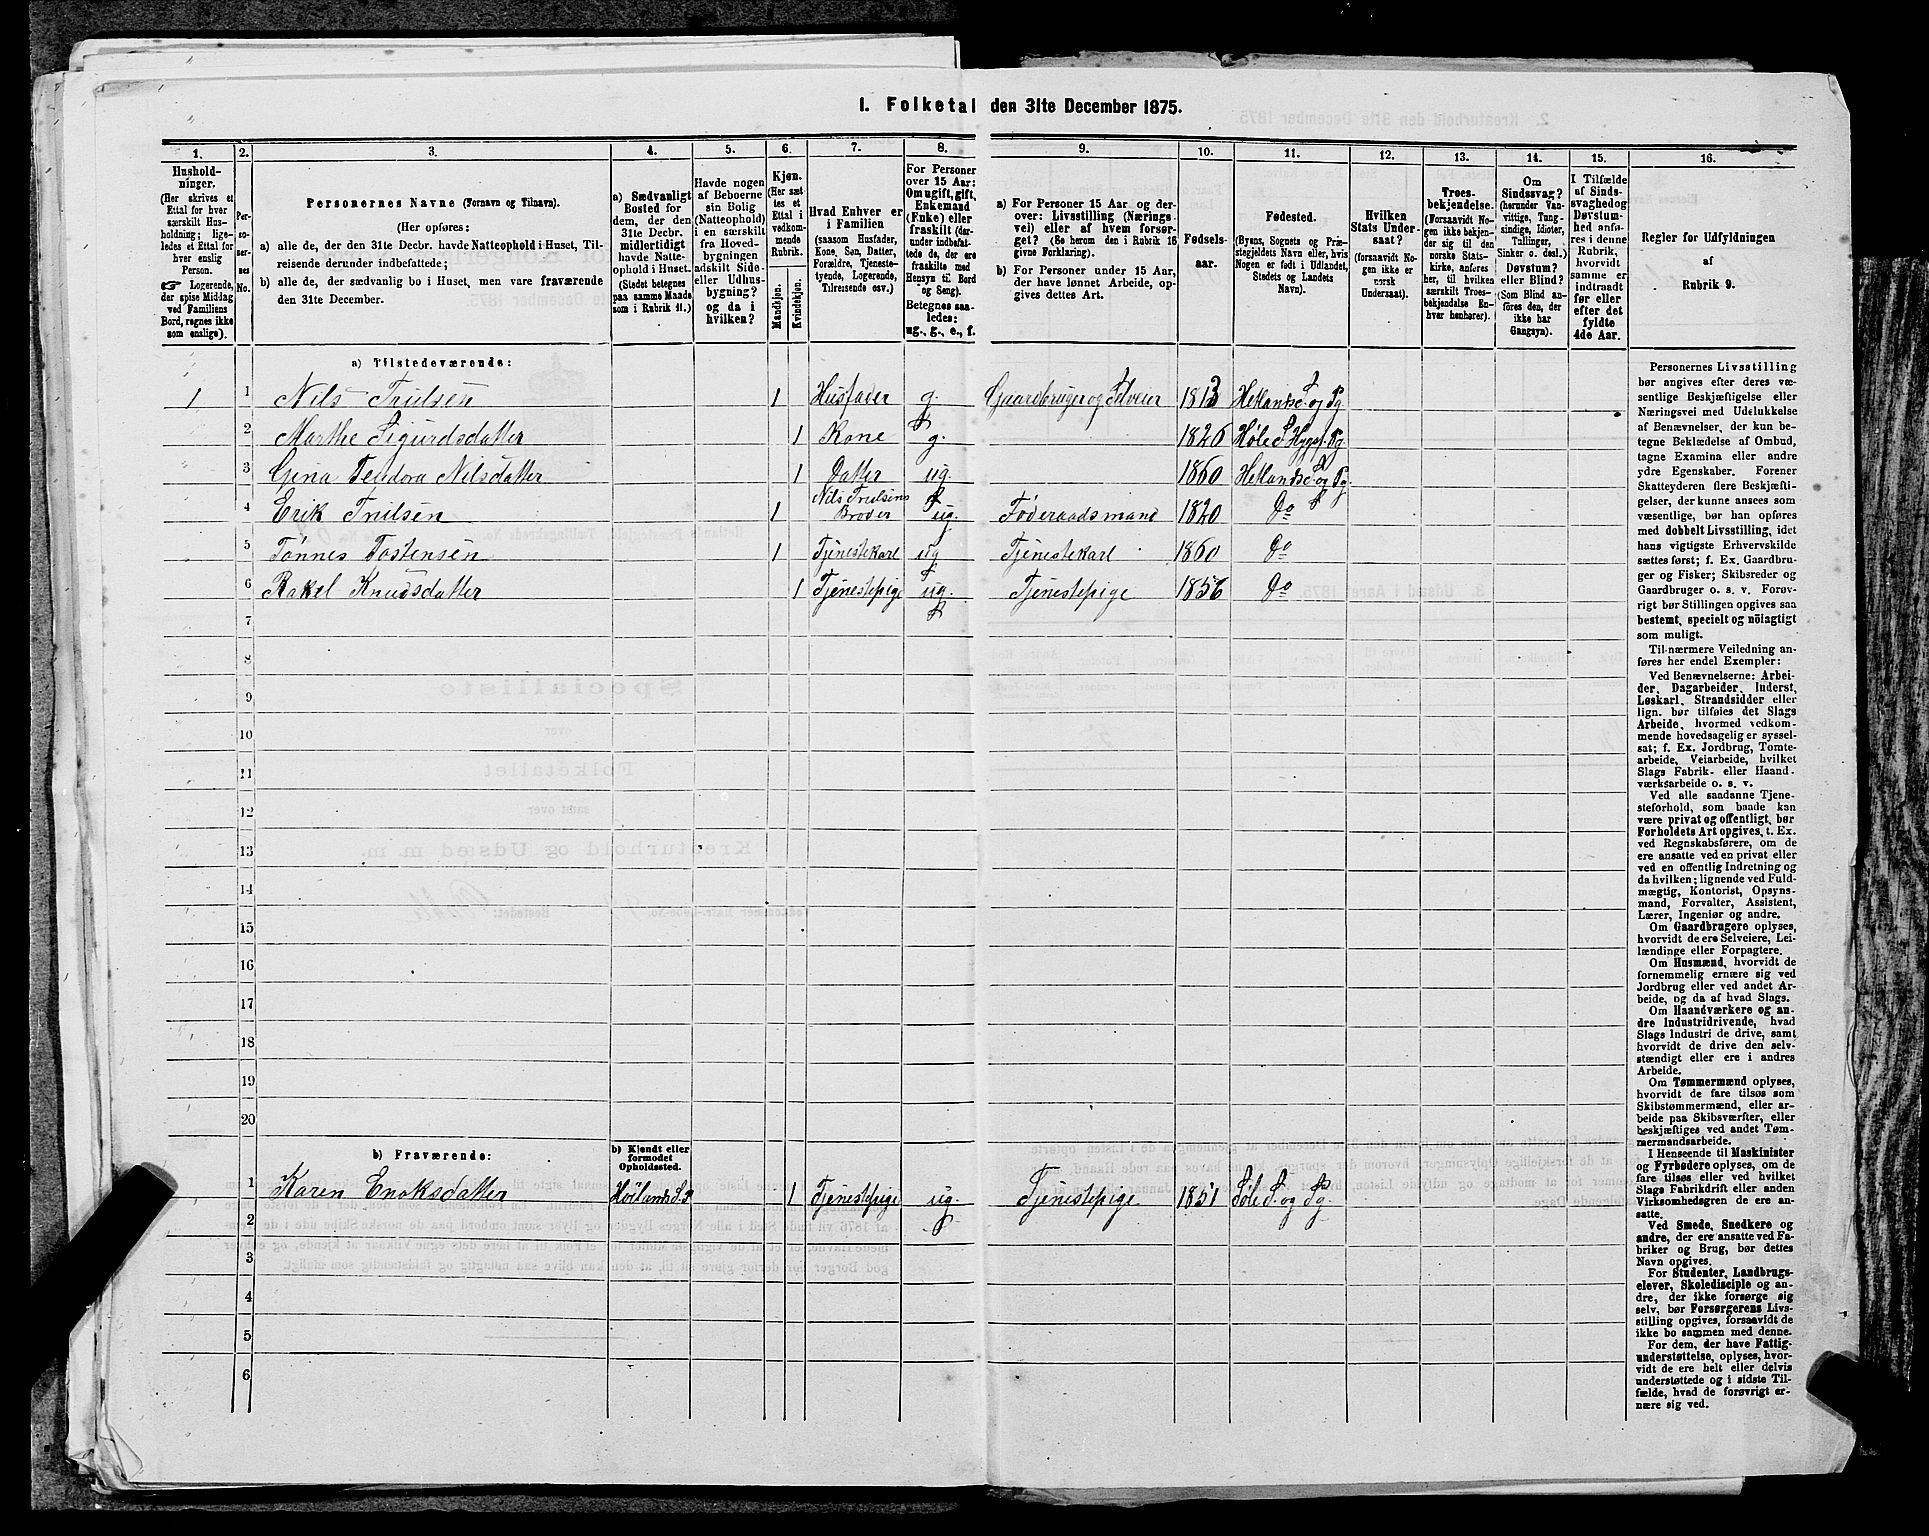 I. Folketal den 31te December 1875.
1. 2. 3. 4. 5. 6. 7. 8. 9. 10. 11. 12. 13. 14. 15. 16.
Hushold-
ninger.
(Her skrives et
Ettal for hver
særskilt Hus-
holdning; lige-
ledes et Ettal for
hver enslig
Person.
☞ Logerende,
der spise Middag
ved Familiens
Bord, regnes ikke
som enslige).
Per-
so-
ner-
nes
No.
Personernes Navne (Fornavn og Tilnavn).
(Her opføres:
a) alle de, der den 31te Decbr. havde Natteophold i Huset, Til-
reisende derunder indbefattede;
b) alle de, der sædvanlig bo i Huset, men vare fraværende
den 31te December.
a) Sædvanligt
Bosted for
dem, der den
31te Decbr.
midlertidigt
havde Natte-
ophold i Huset.
(Stedet betegnes
paa samme Maade
som i Rubrik 11.)
Havde nogen
af Beboerne
sin Bolig
(Natteophold)
i en særskilt
fra Hoved-
bygningen
adskilt Side-
eller Udhus-
bygning?
og da i
hvilken?
Kjøn.
(Her sæt-
tes et
Ettal i
vedkom-
mende
Rubrik.
Mandkjøn.
Kvindekjøn.
Hvad Enhver er
i Familien
(saasom Husfader,
Kone, Søn, Datter,
Forældre, Tjeneste-
tyende, Logerende,
Tilreisende osv.)
For Personer
over 15 Aar:
Om ugift, gift,
Enkemand
(Enke) eller
fraskilt (der-
under indbefat-
tede de, der ere
fraskilte med
Hensyn til Bord
og Seng).
Betegnes saa-
ledes:
ug., g., e., f.
a) For Personer 15 Aar og der-
over: Livsstilling (Nærings-
vei) eller af hvem forsør-
get? (Se herom den i Rubrik 16
givne Forklaring).
b) For Personer under 15 Aar,
der have lønnet Arbeide, op-
gives dettes Art.
Fødsels-
aar.
Fødested.
(Byens, Sognets og Præ-
stegjeldets Navn eller, hvis
Nogen er født i Udlandet,
Stedets og Landets
Navn).
Hvilken
Stats Under-
saat?
(forsaavidt No-
gen ikke er
norsk
Undersaat).
Troes-
bekjendelse.
(Forsaavidt No-
gen ikke bekjen-
der sig til den
norske Stats-
kirke, anføres
her, til hvilken
særskilt Troes-
bekjendelse En-
hver henhører).
Om
Sindssvag?
(herunder Van-
vittige, Tung-
sindige, Idioter,
Tullinger,
Sinker o. desl.)
Døvstum?
eller Blind?
(Som Blind an-
føres den, der
ikke har
Gangsyn).
I Tilfælde
af Sinds-
svaghed og
Døvstum-
hed anfø-
res i denne
Rubrik,
hvorvidt
samme er
indtraadt
før eller
efter det
fyldte
4de Aar.
Regler for Udfyldningen
af
Rubrik 9.
a) Tilstedeværende:
1 1 Nils Trulsen 1 Husfader g. Gaardbruger og Selveier 1813 Hetlands S. og Pg
2 Marthe Sigurdsdatter 1 Kone g. 1826 Høle S. Høgsf. Pg
3 Gina Teodora Nilsdatter 1 Datter ug. 1860 Hetlands S. og Pg
4 Erik Trulsen 1 Nils Trulsens Broder ug. Føderaadsmand 1820 Do
5 Tønnes Tostensen 1 Tjenestekarl ug Tjenestekarl 1860 Do
6 Rakel Knudsdatter 1 Tjenestepige ug. Tjenestepige 1856 Do
7
8
9
10
11
12
13
14
15
16
17
18
19
20
b) Fraværende:
b) Kjendt eller
formodet
Opholdssted.
1 Karen Enoksdatter Høilands S. P 1 Tjenestepige ug. Tjenestepige 1851 S. og Pg.
2
3
4
5
6
Personernes Livsstilling
bør angives efter deres væ-
sentlige Beskjæftigelse eller
Næringsvei med Udelukkelse
af Benævnelser, der kun be-
tegne Beklædelse af Ombud,
tagne Examina eller andre
ydre Egenskaber. Forener
Skatteyderen flere Beskjæfti-
gelser, der kunne ansees som
væsentlige, bør han opføres
med dobbelt Livsstilling, idet
hans vigtigste Erhvervskilde
sættes først; f. Ex. Gaardbru-
ger og Fisker; Skibsreder og
Gaardbruger o. s. v. Forøv-
rigt bør Stillingen opgives saa
bestemt, specielt og nölagtigt
som muligt.
Til nærmere Veiledning an-
føres her endel Exempler:
Ved Benævnelserne: Arbei-
der, Dagarbeider, Inderst,
Løskarl, Strandsidder eller
lign. bør tilføies det Slags
Arbeide, hvormed vedkom-
mende hovedsagelig er syssel-
sat; f. Ex. Jordbrug, Tomte-
arbeide, Veiarbeide, hvilket
Slags Fabrik- eller Haand-
værksarbeide o. s. v.
Ved alle saadanne Tjene-
steforhold, som baade kan
være privat og offentligt, bør
Forholdets Art opgives, t. Ex.
ved Regnskabsførere, om de
ere ansatte ved en privat eller
ved en offentlig Indretning og
da hvilken; lignende ved Fuld-
mægtig, Kontorist, Opsyns-
mand, Forvalter, Assistent,
Lærer, Ingeniør og andre.
Om Gaardbrugere oplyses,
hvorvidt de ere Selveiere, Lei-
lændinge eller Forpagtere.
Om Husmænd, hvorvidt de
fornemmelig ernære sig ved
Jordbrug eller ved andet Ar-
beide, og da af hvad Slags.
Om Haandværkere og an-
dre Industridrivende, hvad
Slags Industri de drive, samt
hvorvidt de drive den selv-
stændigt eller ere i andres
Arbeide.
Om Tømmermænd oplyses,
hvorvidt de fare tilsøs som
Skibstømmermænd, eller ar-
beide paa Skibsværfter, eller
beskjæftiges ved andet Tøm-
mermandsarbeide.
I Henseende til Maskinister
og Fyrbødere oplyses, om de
fare tilsøs eller ved hvilket
Slags Fabrikdrift eller anden
Virksomhedsgren de ere an-
satte.
Ved Smede, Snedkere og
andre, der ere ansatte ved Fa-
briker og Brug, bør dettes
Navn opgives.
For Studenter, Landbrugs-
elever, Skoledisciple og an-
dre, der ikke forsørge sig
selv, bør Forsørgerens Livs-
stilling opgives, forsaavidt de
ikke bo sammen med denne.
For dem, der have Fattig-
understøttelse, oplyses, hvor-
vidt de ere helt eller delvis
understøttede og i sidste Til-
fælde, hvad de forøvrigt er-
nære sig ved.